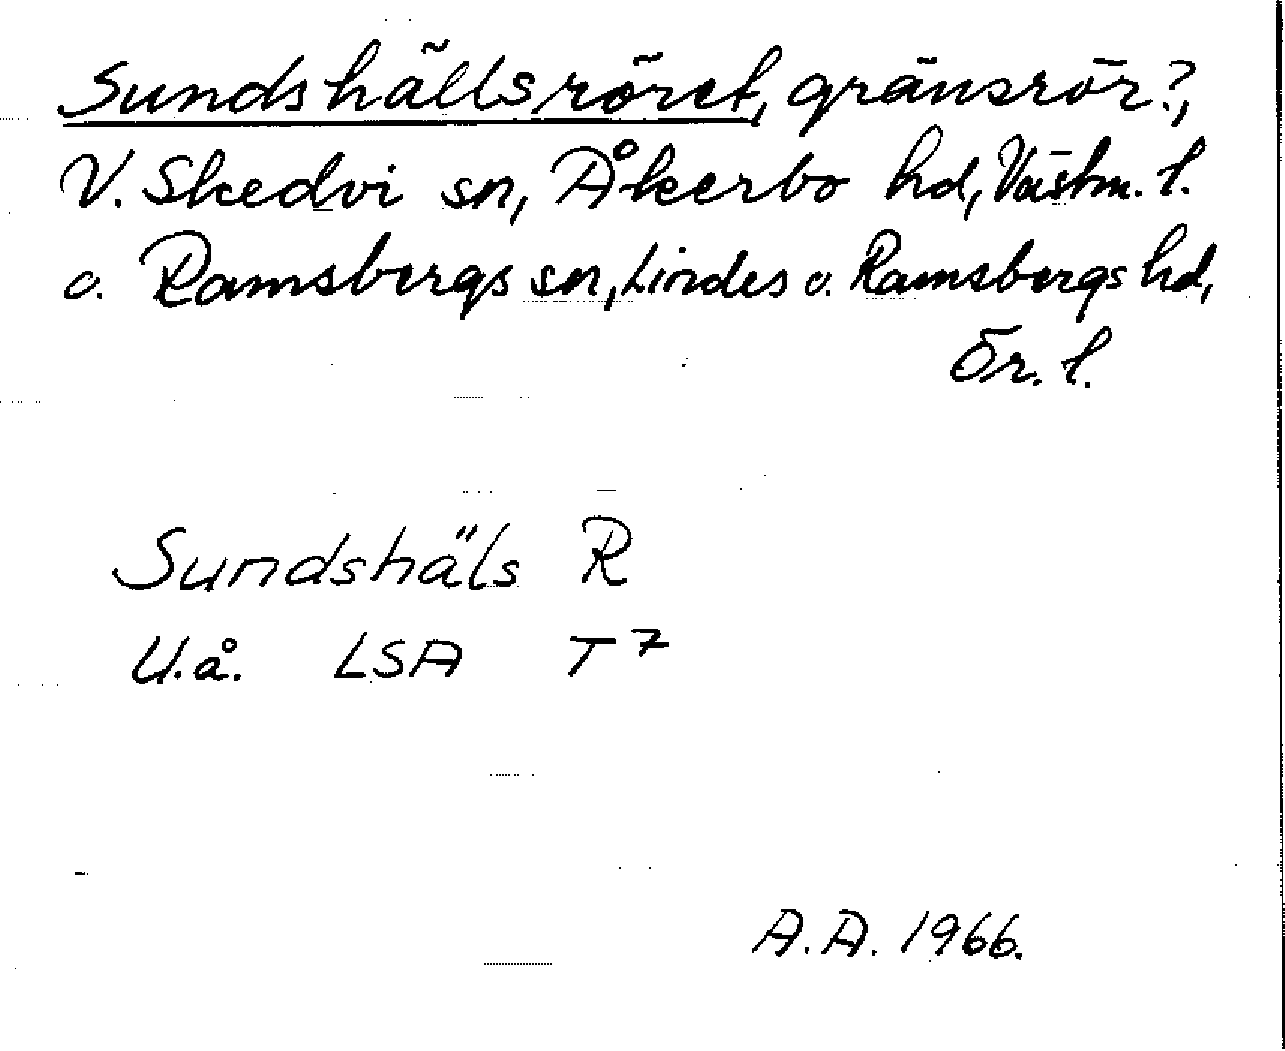 Sundshällsröret, gränsrör?,
V. Skedvi sn, Åkerbo hd, Västm. l.
o. Ramsbergs sn, Lindes o. Ramsbergs hd,
Ör. l.
Sundshäls R
U.å. LSA T 7
A.A. 1966.